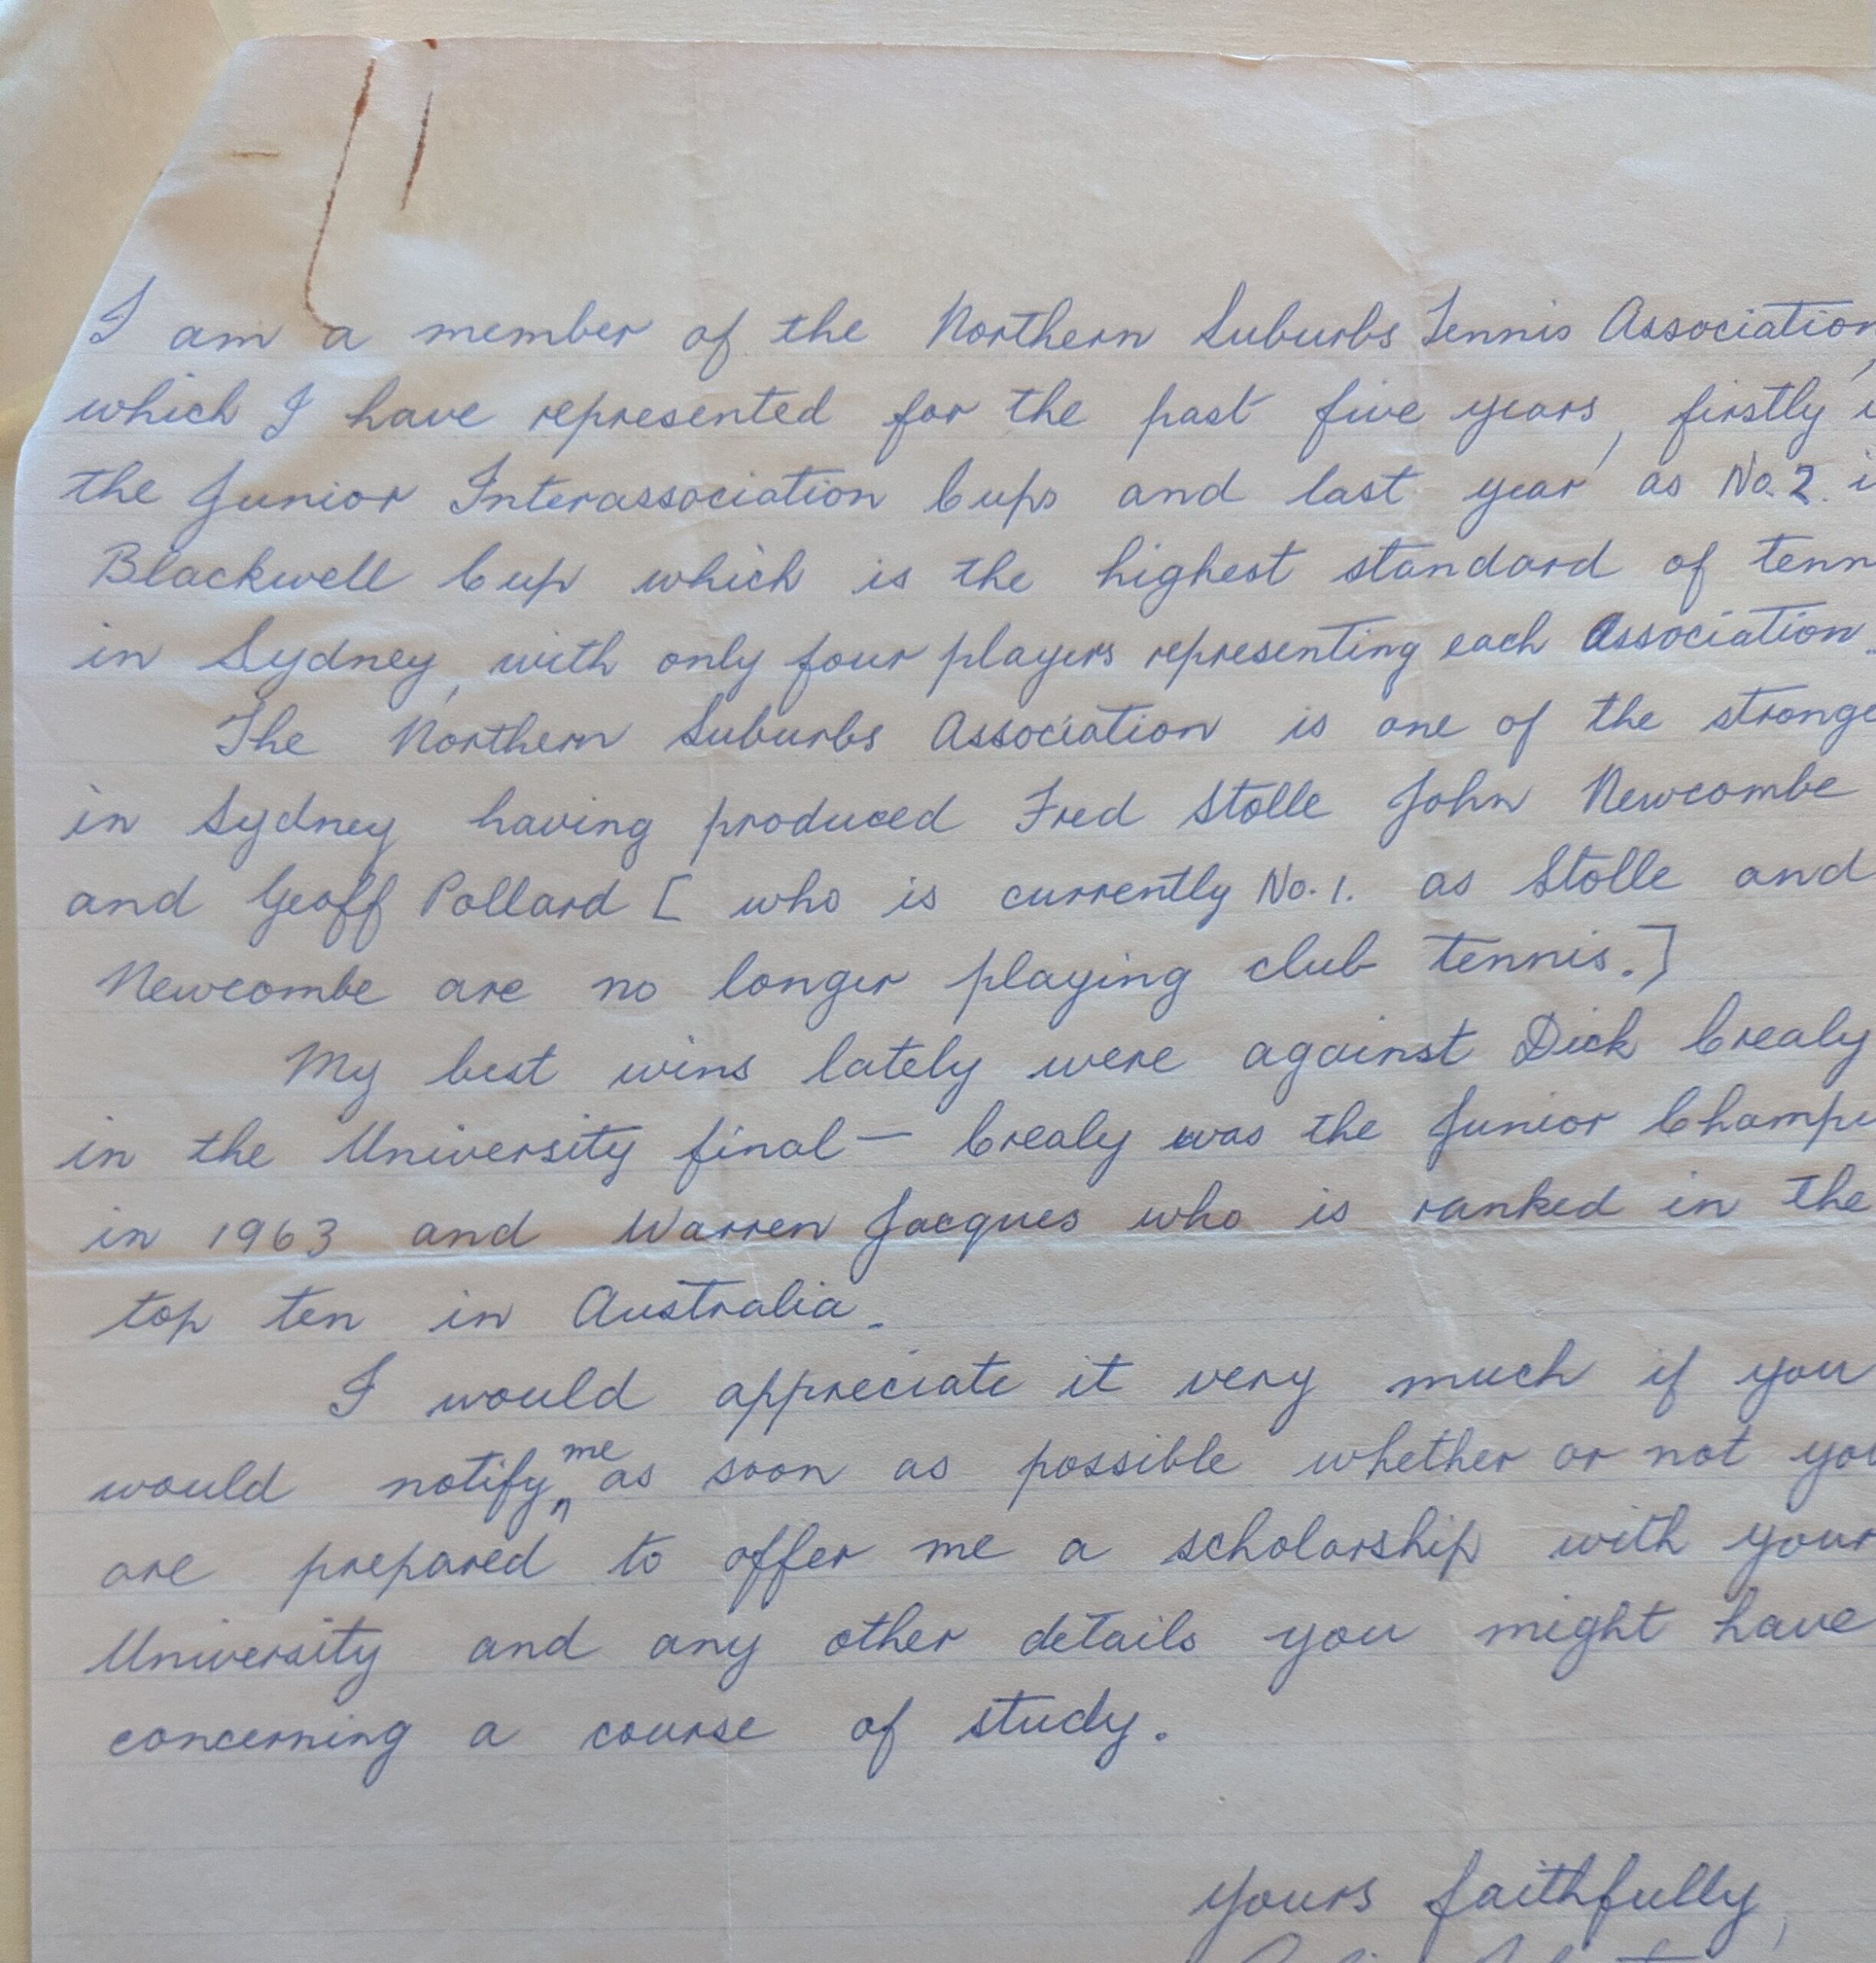 I am a member of the Northern Suburbs Tennis Association,
which I have represented for the past five years, firstly
the Junior Interassociation Cups and last year as No. 2.
Blackwell Cup which is the highest standard of tenn
in Sydney, with only four players representing each Association.
The Northern Suburbs Association is one of the stronge
in Sydney having produced Fred Stolle John Newcombe
and Geoff Pollard [ who is currently No. 1. as Stolle and
Newcombe are no longer playing club tennis.]
My best wins lately were against Dick Crealy
in the University final — Crealy was the Junior Champi
in 1963 and Warren Jacques who is ranked in the
top ten in Australia.
I would appreciate it very much if you
would notify me as soon as possible whether or not you
are prepared to offer me a scholarship with your
University and any other details you might have
concerning a course of study.
Yours faithfully,